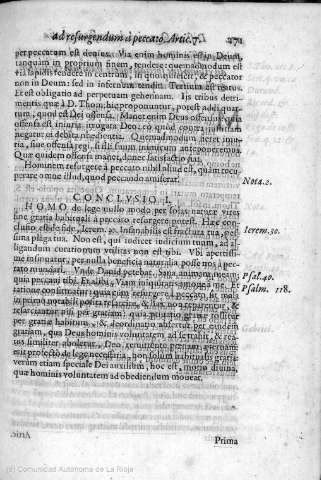 ad resurgendum à peccato. Artic. 7. 271
per peccatum est deuius. Via enim hominis est in Deum,
tanquam in proprium finem, tendere: quemadmodum est
via lapidis tendere in centrum, in quo quiescit, & peccator
non in Deum sed in infernum tendit. Tertium est reatus.
Et est obligatio ad perpetuam gehennam. Iis tribus detri-
mentis quæ à D. Thom. hic proponuntur, potest addi quar-
tum, quod est Dei offensa. Manet enim Deus offensus
offensa est iniuria irrogata Deo: eò quòd contra iustitiam
negatur ei debita obedientia. Quemadmodum
ria, siue offensa regi, si illi suum numerum anteponeremus.
Quæ quidem offensa manet, donec satisfactio fiat.
Hominem resurgere à peccato nihil aliud est, quàm recu-
perare omne illud, quod peccando amiserat.
Nota. 2.
CONCLVSIO I.
HOMO de lege nullo modo per solas naturæ vires
sine gratia habituali à peccato resurgere potest. Hæc con-
clusio est de fide, Ierem. 30. Insanabilis est fractura tua, pes-
sima plaga tua. Non est, qui iudicet iudicium tuum, ad al-
ligandum: curationum vtilitas non est tibi. Vbi apertissi-
me insinuatur, per nulla beneficia naturalia posse nos à pec-
cato mundari. Vnde Dauid petebat. Sana animam meam,
quia peccaui tibi. Et alibi. Viam iniquitatis amoue à me. Et
ratione confirmatur: quia cùm resurgere à peccato, sit mala
in primo notabili posita resarcire, & hæc non
resarciantur nisi per gratiam: quia priuatio gratiæ tollitur
per gratiæ habitum, & deordinatio aufertur per eiusdem
gratiam, qua Deus hominis voluntatem ad se trahit, & rea-
tus similiter aboletur, Deo remittente pœnam æternam:
erit profectò de lege necessaria, non solùm habitualis gratia,
verùm etiam speciale Dei auxilium, hoc est, motio diuina,
qua hominis voluntatem ad obediendum moueat.
Ierem. 30.
Psal. 40.
Psalm. 118.
Prima
(c) Comunidad Autónoma de La Rioja